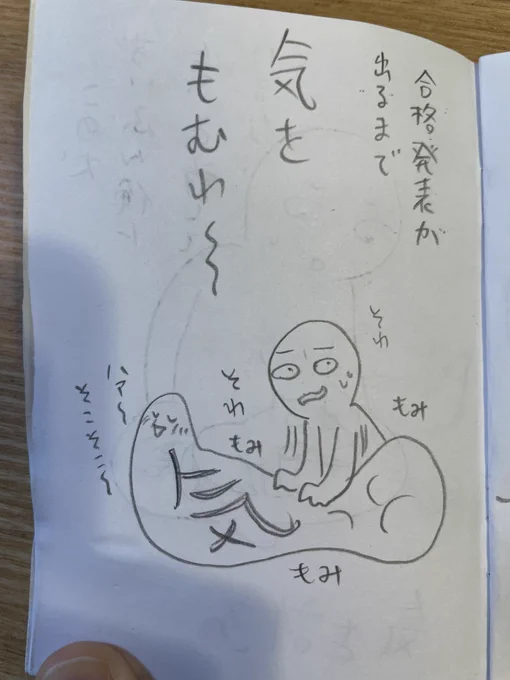 合格発表が
出るまで
気を
もむわ〜〜
それ
それ
もみ
もみ
もみ
気
ハァ〜
そこそこ〜